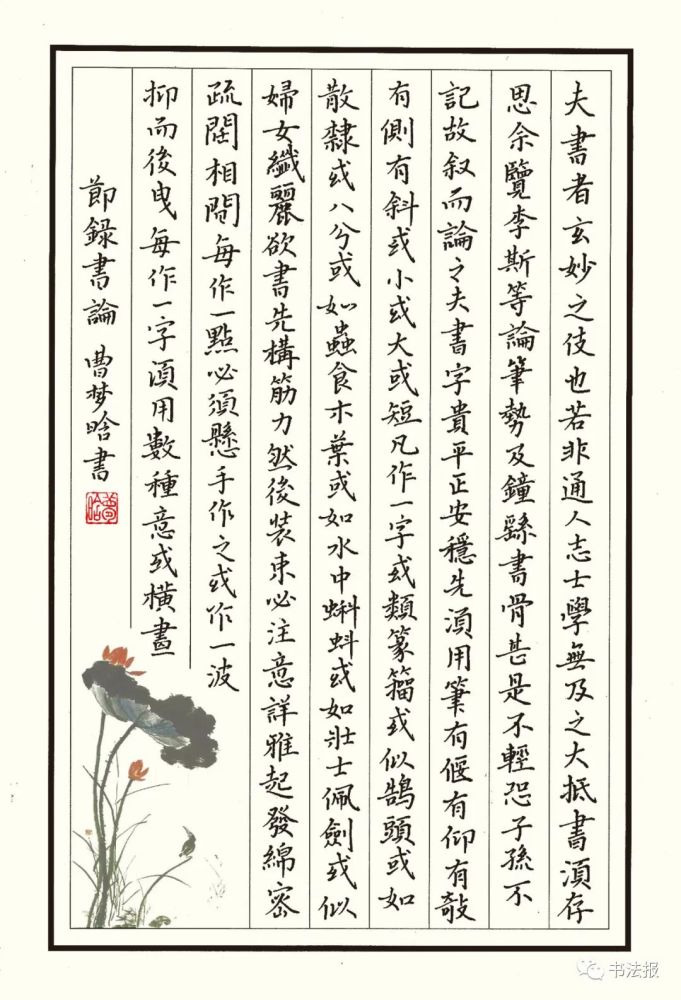 夫書者玄妙之伎也若非通人志士學無及之大抵書須存
思余覽李斯等論筆勢及鐘繇書骨甚是不輕恐子孫不
記故叙而論之夫書字貴平正安穩先須用筆有偃有仰有敧
有側有斜或小或大或短凡作一字或類篆籀或似鵠頭或如
散隸或八分或如蟲食木葉或如水中蝌蚪或如壯士佩劍或似
婦女纖麗欲書先構筋力然後裝束必注意詳雅起發綿密
疏闊相間每作一點必須懸手作之或作一波
抑而後曳每作一字須用數種意或橫畫
節錄書論 曹梦晗書
书法报